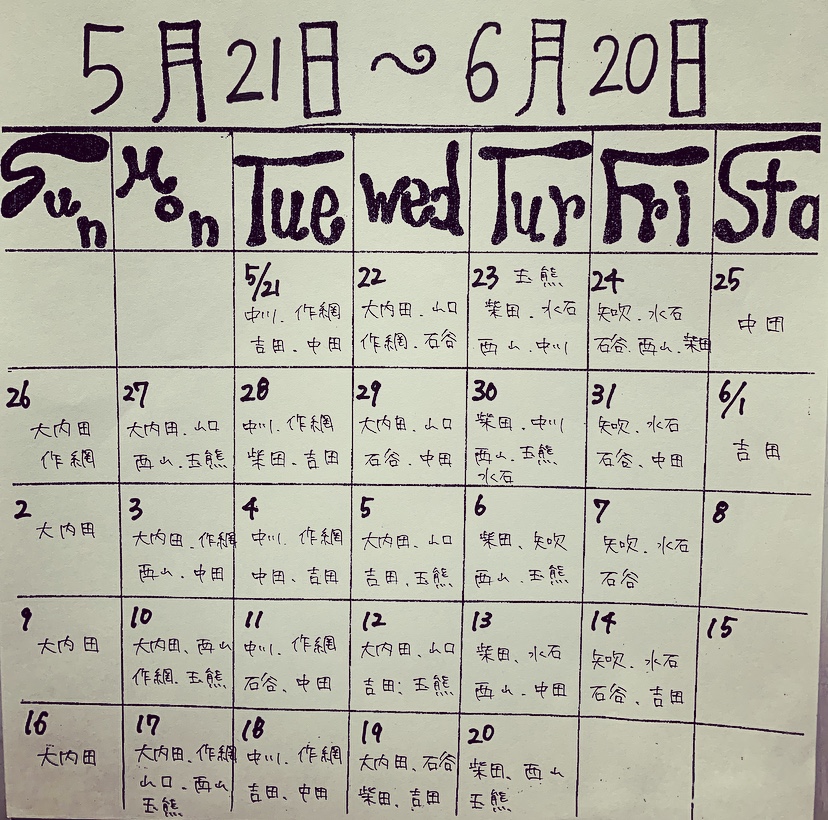 5月21日～6月20日
Sun Mon Tue Wed Tur Fri Sta
5/21
中川、作綱
吉田、中田
22
大内田、山口
作綱、石谷
23 玉熊
柴田、水石
西山、中川
24
矢吹、水石
石谷、西山、柴田
25
中田
26
大内田
作綱
27
大内田、山口
西山、玉熊
28
中川、作綱
柴田、吉田
29
大内田、山口
石谷、中田
30
柴田、中川
西山、玉熊
水石
31
矢吹、水石
石谷、中田
6/1
吉田
2
大内田
3
大内田、作綱
西山、中田
4
中川、作綱
中田、吉田
5
大内田、山口
吉田、玉熊
6
柴田、矢吹
西山、玉熊
7
矢吹、水石
石谷
8
9
大内田
10
大内田、西山
作綱、玉熊
11
中川、作綱
石谷、中田
12
大内田、山口
吉田、玉熊
13
柴田、水石
西山、中田
14
矢吹、水石
石谷、吉田
15
16
大内田
17
大内田、作綱
山口、西山
玉熊
18
中川、作綱
吉田、中田
19
大内田、石谷
柴田、吉田
20
柴田、西山
玉熊